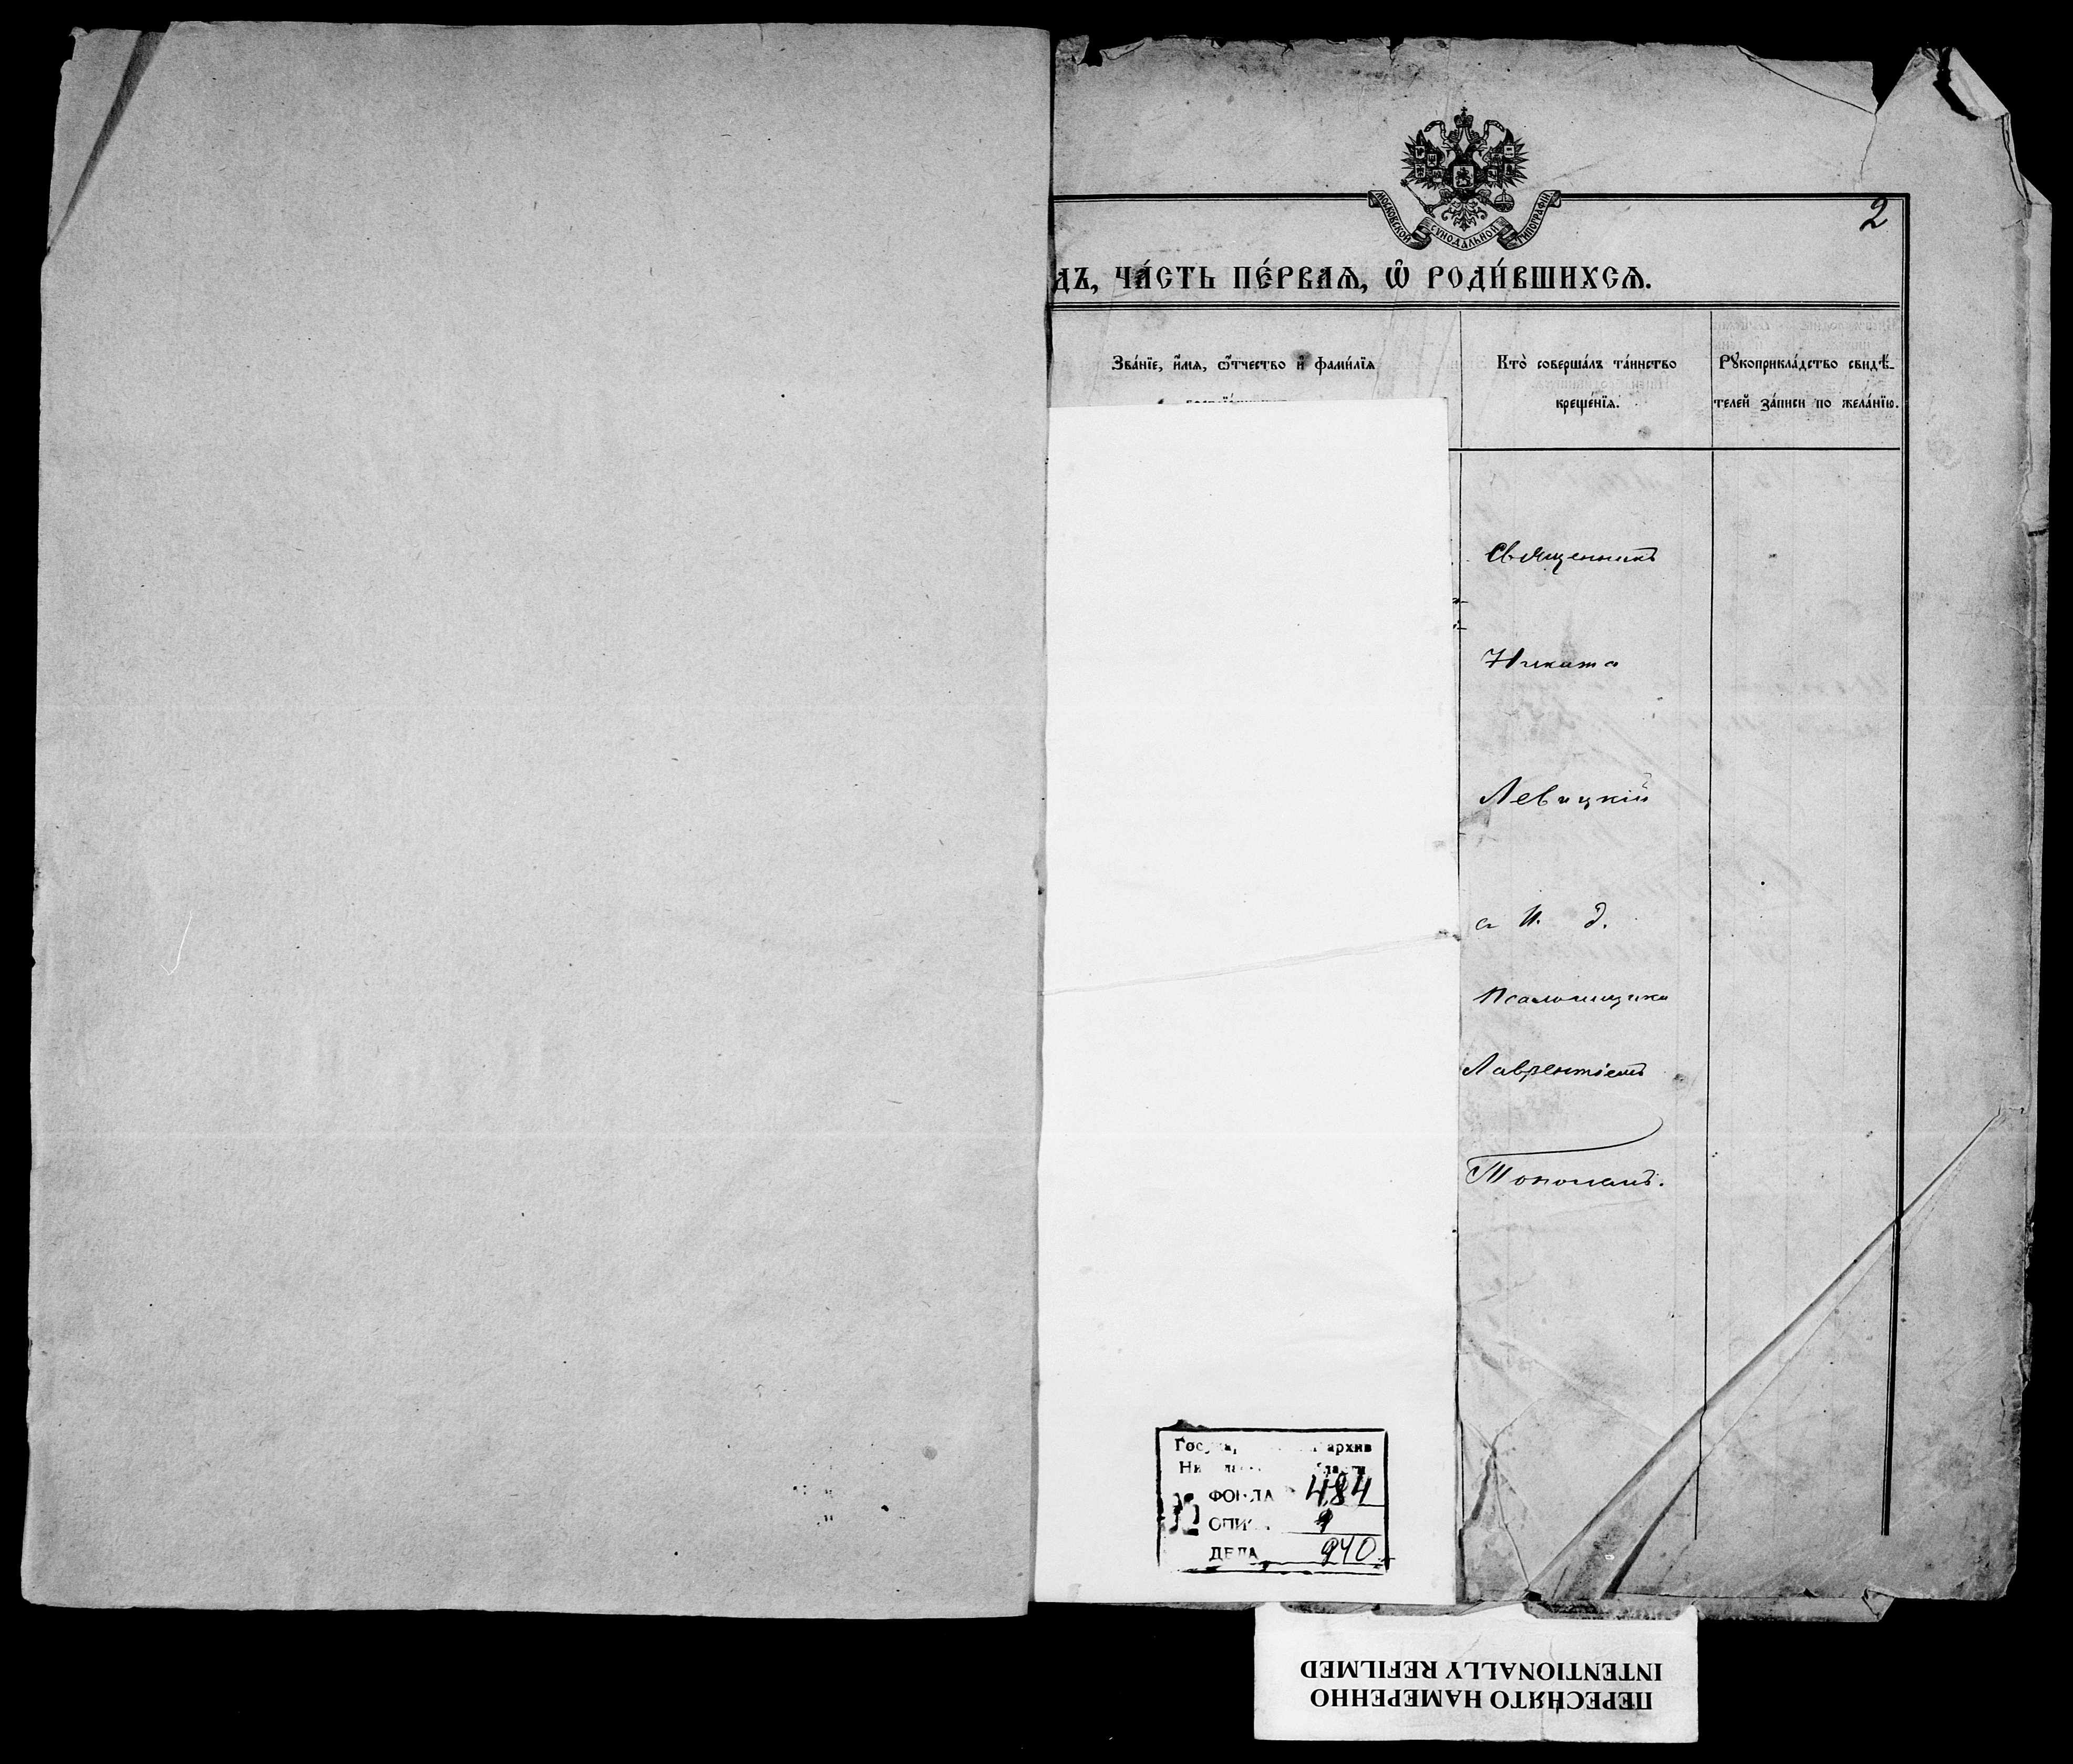 МОСКОВСКОЙ СѴНОДАЛЬНОЙ ТИПОГРАФІИ
2
дъ, ча́сть пе́рваѧ, ѡ҆ роди́вшихсѧ.
Зва́нїе, и҆́мѧ, ѻ҆́тчество и҆ фами́лїѧ
Кто̀ соверша́лъ та́инство
креще́нїѧ.
Рꙋкоприкла́дство свидѣ́-
телей за́писи по жела́нїю.
Священникъ
Никита
Левицкій
с и. д.
Псаломщика
Лаврентіемъ
Архив
ФОНДА 484
ОПИ
ДЕЛА 940
ПЕРЕСНЯТО НАМЕРЕННО
INTENTIONALLY REFILMED